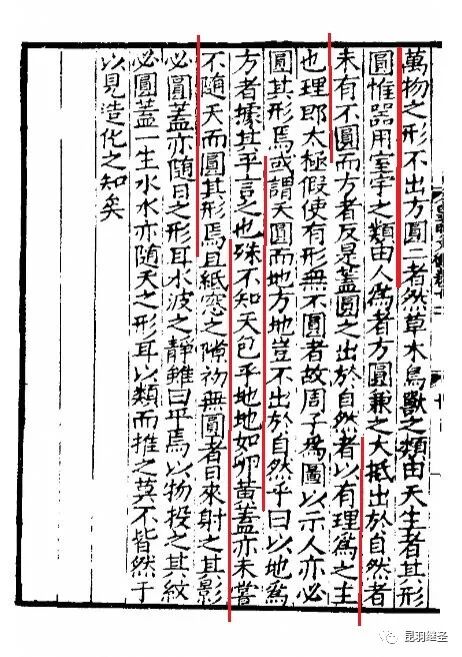 萬物之形不出方圓二者然草木鳥獸之類由天生者其形
圓惟器用室宇之類由人爲者方圓兼之大抵出於自然者
未有不圓而方者反是蓋圓之出於自然者以有理爲之主
也理即太極假使有形無不圓者故周子爲圖以示人亦必
圓其形焉或謂天圓而地方地豈不出於自然乎曰以地爲
方者據其平言之也殊不知天包乎地地如卵黃蓋亦未嘗
不隨天而圓其形焉且紙窓之隙初無圓者日來射之其影
必圓蓋亦隨日之形耳水波之靜雖曰平焉以物投之其紋
必圓蓋一生水水亦隨天之形耳以類而推之莫不皆然于
以見造化之知矣
昆羽继圣